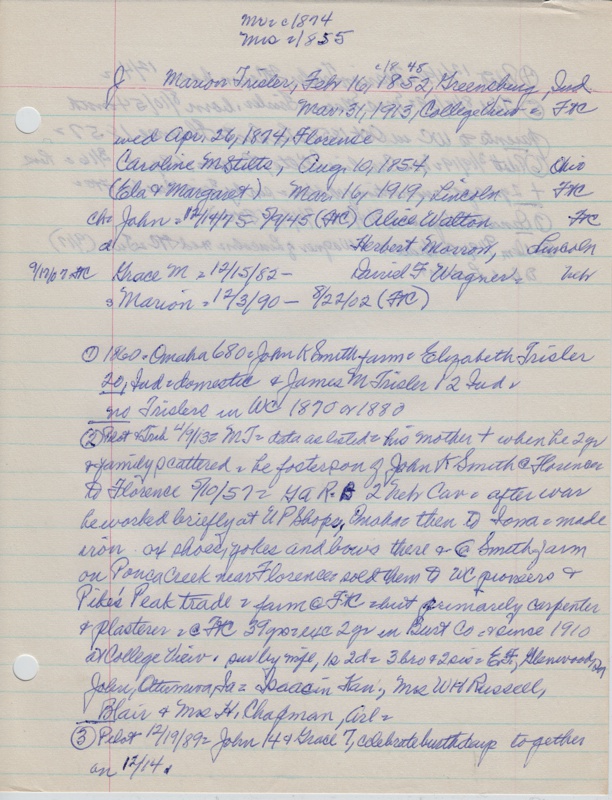 Mr = c/1874
Mrs = c/1855
c 18-48
J Marion Trisler, Feb 16, 1852, Greensburg, Ind
Mar. 31, 1913, College View = FtC
wed Apr. 26, 1874, Florence
Caroline M Stilts, Aug. 10, 1854 Ohio
(Ela & Margaret) Mar. 16, 1919, Lincoln FtC
ch = John = 12/14/75 = 5/9/45 (FtC) Alice Walton FtC
Herbert Morrow, Lincoln
9/12/07 FtC Grace M = 12/15/82 - David F Wagner = Neb
= Marion = 12/3/90 - 8/22/02 (FtC)
① 1860 = Omaha 680 = John K Smith farm = Elizabeth Trisler
20, Ind = domestic & James M Trisler 12 Ind =
no Trislers in WC 1870 or 1880
② Pilot & Trib 4/9/13 = MT = data as listed = his mother + when he 2 yr
& family scattered = he foster son of John K Smith @ Florence =
to Florence 5/10/57 = GAR = B 2 Neb Cav = after war
he worked briefly at UP Shops, Omaha = then to Iowa = made
iron ox shoes, yokes and bows there & @ Smith farm
on Ponca Creek near Florence = sold them to UC pioneers &
Pike's Peak trade = farm @ FtC = but primarily carpenter
& plasterer = @ FtC 39 yrs = exc 2 yr in Burt Co. = & since 1910
at College View. sur by wife, 1s 2d = 3 bro & 2 sis = Eli, Glenwood,
John, Ottumwa, Ia = Isaac in Kan., Mrs WH Russell,
Blair & Mrs H. Chapman, Arl =
③ Pilot 12/19/89 = John 14 & Grace 7, celebrate birthdays together
on 12/14.